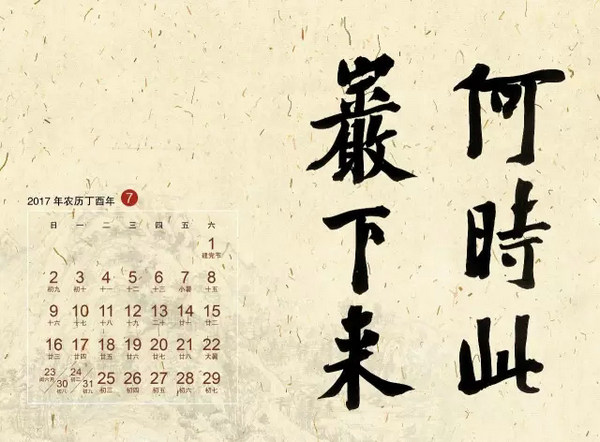 何時此
巖下来
2017 年农历丁酉年 7
日 一 二 三 四 五 六
1
建党节
2 3 4 5 6 7 8
初九 初十 十一 十二 十三 小暑 十五
9 10 11 12 13 14 15
十六 十七 十八 十九 二十 廿一 廿二
16 17 18 19 20 21 22
廿三 廿四 廿五 廿六 廿七 廿八 大暑
23 30 24 31 25 26 27 28 29
闰六月 初八 初二 初九 初三 初四 初五 初六 初七